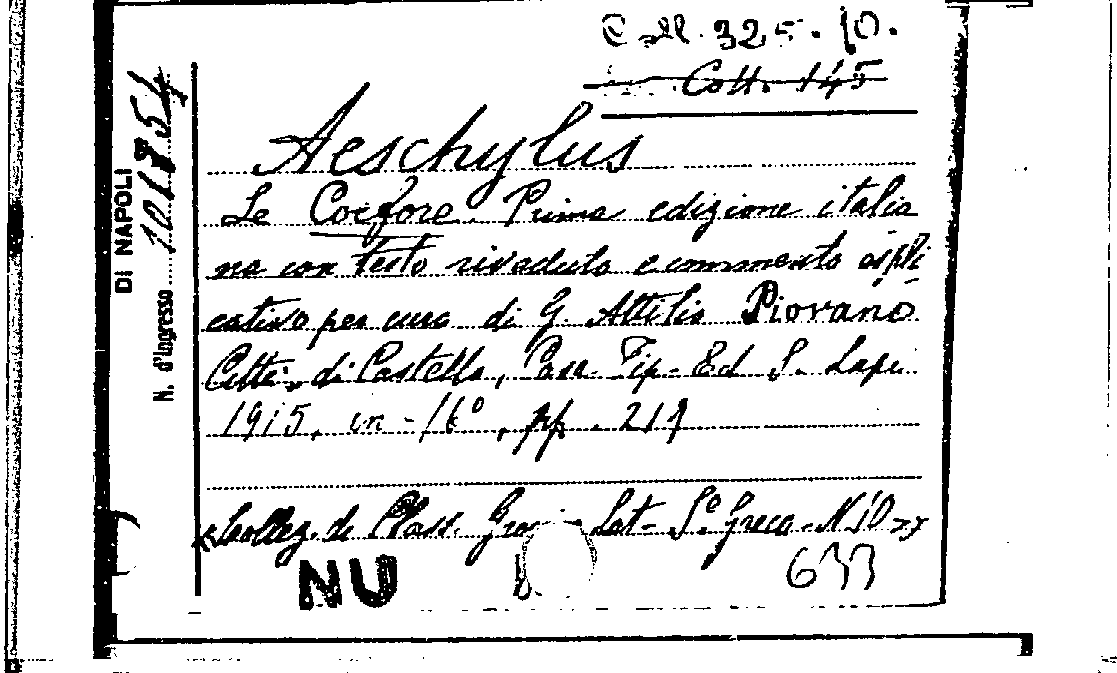 Coll. 325. 10.
Coll. 145
Aeschylus
Le Coefore. Prima edizione italia
na con testo riveduto e commento espli
cativo per cura di G. Attilio Piovano
Città di Castello, Casa Tip. Ed S. Lapi
1915, in-16°, pp. 219
«Collez. di Class. Greci Lat- S.e Greca- N 10»
NU
633
DI NAPOLI
N. d'Ingresso 101854